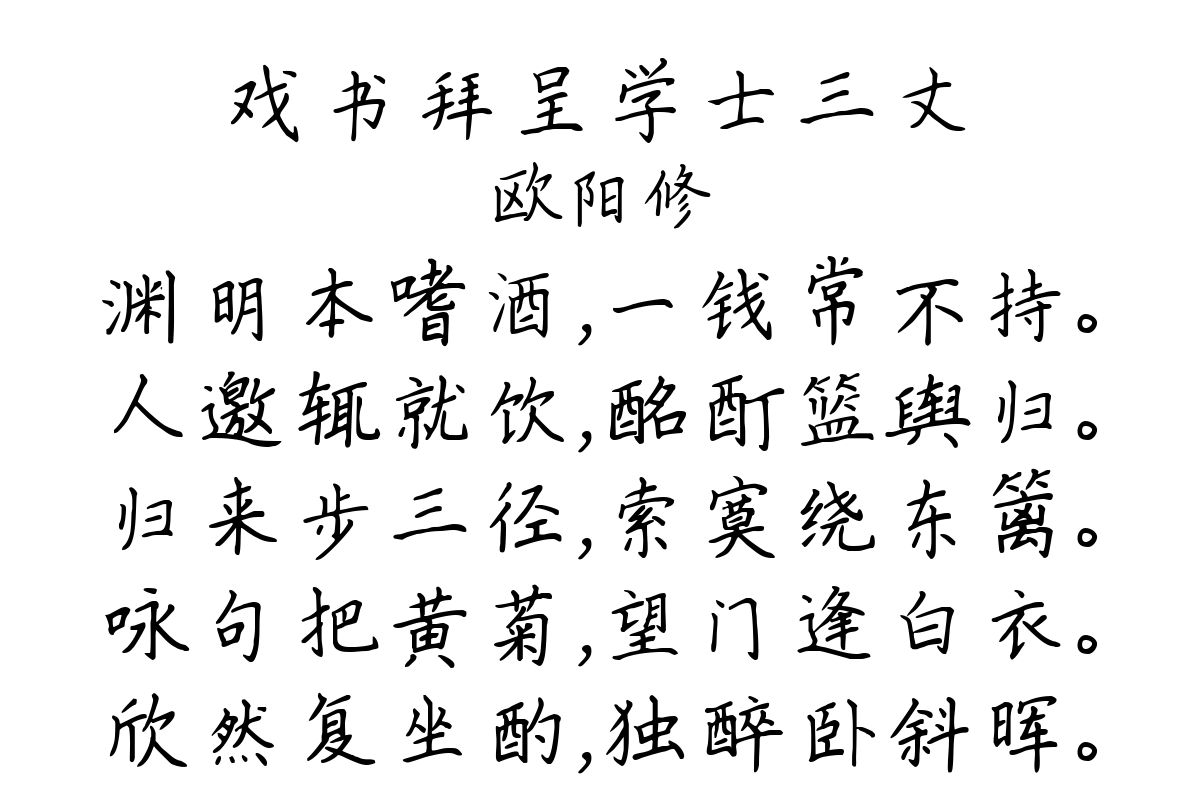 戏书拜呈学士三丈
欧阳修
渊明本嗜酒,一钱常不持。
人邀辄就饮,酩酊篮舆归。
归来步三径,索寞绕东篱。
咏句把黄菊,望门逢白衣。
欣然复坐酌,独醉卧斜晖。